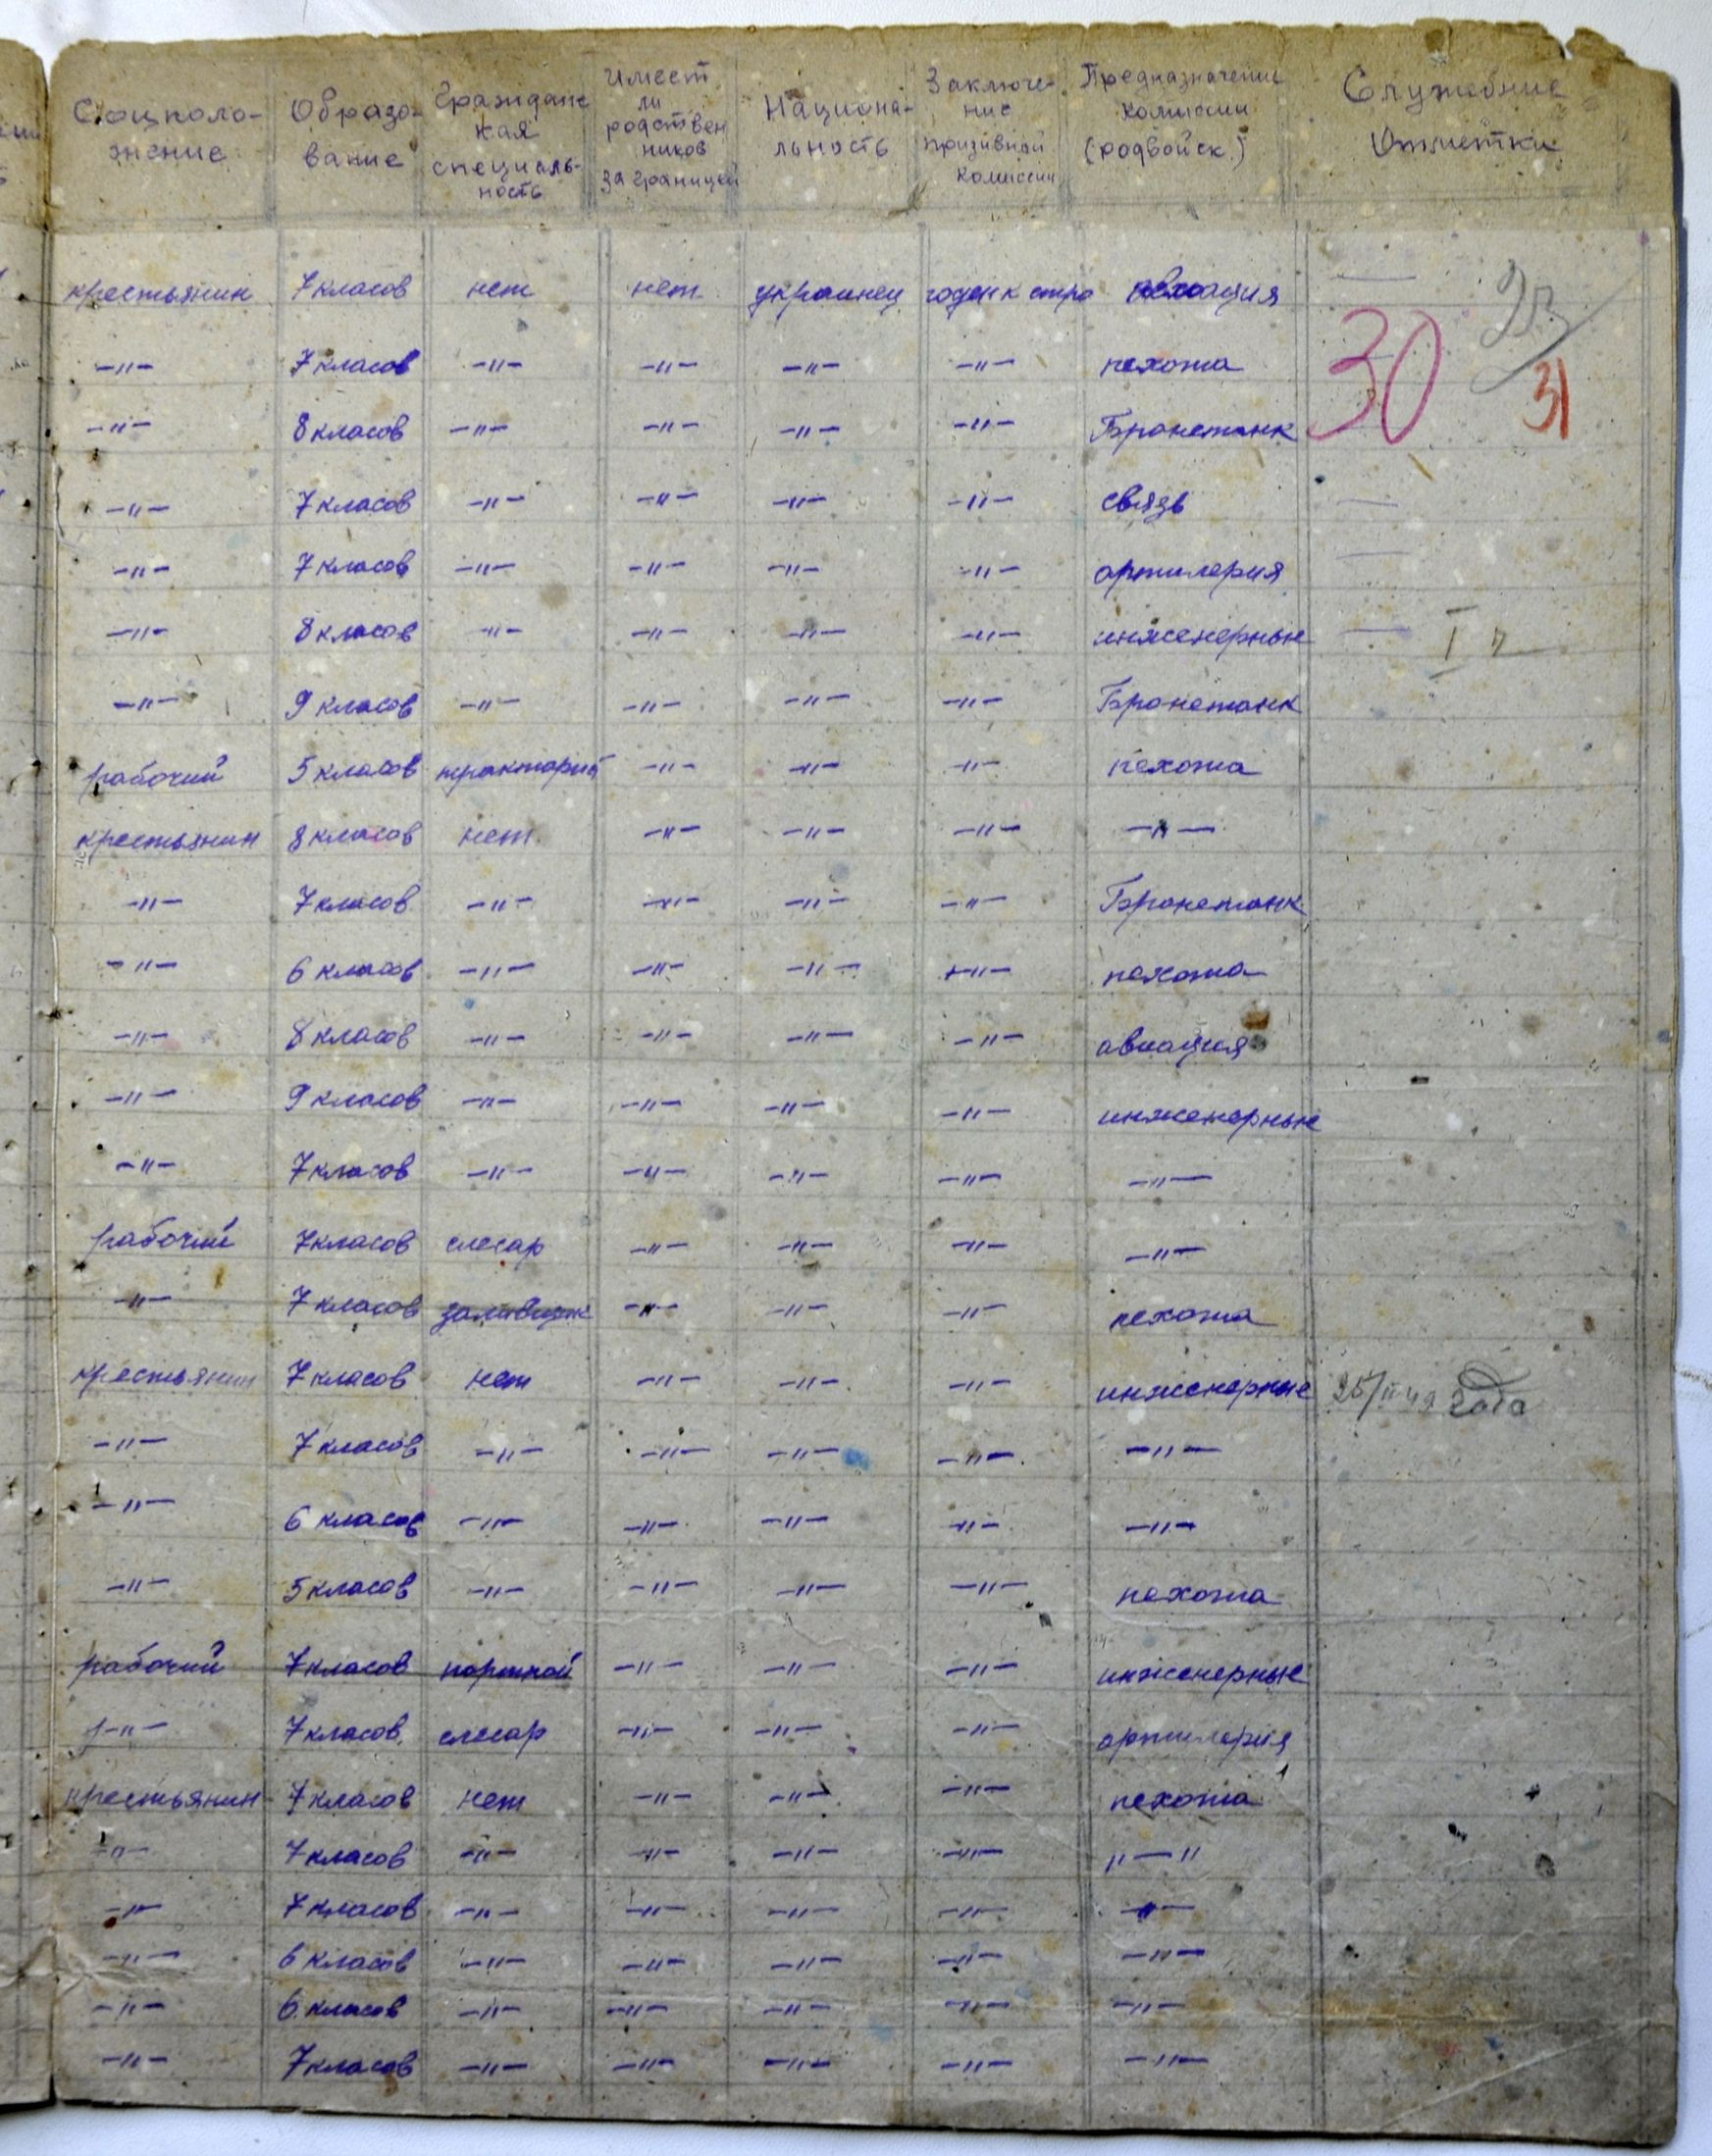 Соцполо- Образо- Гражданс Имеет Национа- Заключе- Предназначение Служебние
жение вание кая ли льность ние комиссии отметки
специаль- родствен призивной (родвойск.)
ность ников комиссии
за границей
крестьянин 7 класов нет нет украинец годен к стро авиация —
30 31
—"— 7 класов —"— —"— —"— —"— пехота
—"— 8 класов —"— —"— —"— —"— Бронетанк
—"— 7 класов —"— —"— —"— —"— связь —
—"— 7 класов —"— —"— —"— —"— артилерия —
—"— 8 класов —"— —"— —"— —"— инженерные —
—"— 9 класов —"— —"— —"— —"— Бронетанк
рабочий 5 класов —"— —"— —"— пехота
крестьянин 8 класов нет —"— —"— —"— —"—
—"— 7 класов —"— —"— —"— —"— Бронетанк
—"— 6 класов —"— —"— —"— —"— пехота
—"— 8 класов —"— —"— —"— —"— авиация
—"— 9 класов —"— —"— —"— —"— инженерные
—"— 7 класов —"— —"— —"— —"— —"—
рабочий 7 класов слесар —"— —"— —"— —"—
—"— 7 класов —"— —"— —"— пехота
крестьянин 7 класов нет —"— —"— —"— инженерные 25/II 49 года
—"— 7 класов —"— —"— —"— —"— —"—
—"— 6 класов —"— —"— —"— —"— —"—
—"— 5 класов —"— —"— —"— —"— пехота
рабочий 7 класов портной —"— —"— —"— инженерные
—"— 7 класов слесар —"— —"— —"— артилерия
крестьянин 7 класов нет —"— —"— —"— пехота
—"— 7 класов —"— —"— —"— —"— "—"
—"— 7 класов —"— —"— —"— —"— —"—
—"— 6 класов —"— —"— —"— —"— —"—
—"— 6 класов —"— —"— —"— —"— —"—
—"— 7 класов —"— —"— —"— —"— —"—